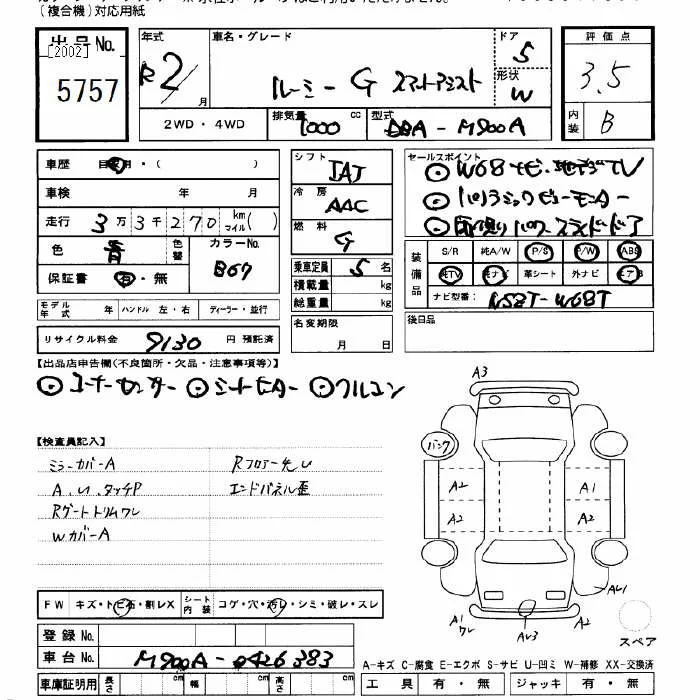 (複合機)対応用紙
出品No.
[2002]
5757
年式
R2/
月
車名・グレード
ルーミー G スマートアシスト
ドア
5
形状
W
評価点
3.5
内装
B
2WD・4WD
排気量
1000
cc
型式
DBA-M900A
車歴
・(
)
車検
年
月
走行
3万3千270
km
マイル
( )
色
青
色替
カラーNo.
B67
保証書
有・無
シフト
IAT
冷房
AAC
燃料
G
乗車定員
5名
積載量
kg
総重量
kg
セールスポイント
○W68ナビ・地デジTV
○パノラミックビューモニター
○両側パワースライドドア
装備品
S/R
純A/W
P/S
P/W
ABS
純TV
純ナビ
革シート
外ナビ
エアB
ナビ型番:
NSZT-W68T
モデル年式
年
ハンドル 左・右
ディーラー・並行
リサイクル料金
9130
円 預託済
名変期限
月
日
後日品
【出品店申告欄(不良箇所・欠品・注意事項等)】
○コーナーセンサー ○シートヒーター ○クルコン
【検査員記入】
ミラーカバーA
Rフロアー先U
A,U,タッチP
エンドパネル歪
Rゲートトリムワレ
WカバーA
A3
パンク
A2
A1
A2
A2
AU1
A1
ワレ
AU3
A2
スペア
FW
キズ・トビ石・割レX
シート内装
コゲ・穴・汚レ・シミ・破レ・スレ
登録No.
車台No.
M900A-0426383
車庫証明用
長さ
cm
幅
cm
高さ
cm
A-キズ C-腐食 E-エクボ S-サビ U-凹ミ W-補修 XX-交換済
工具
有・無
ジャッキ
有・無